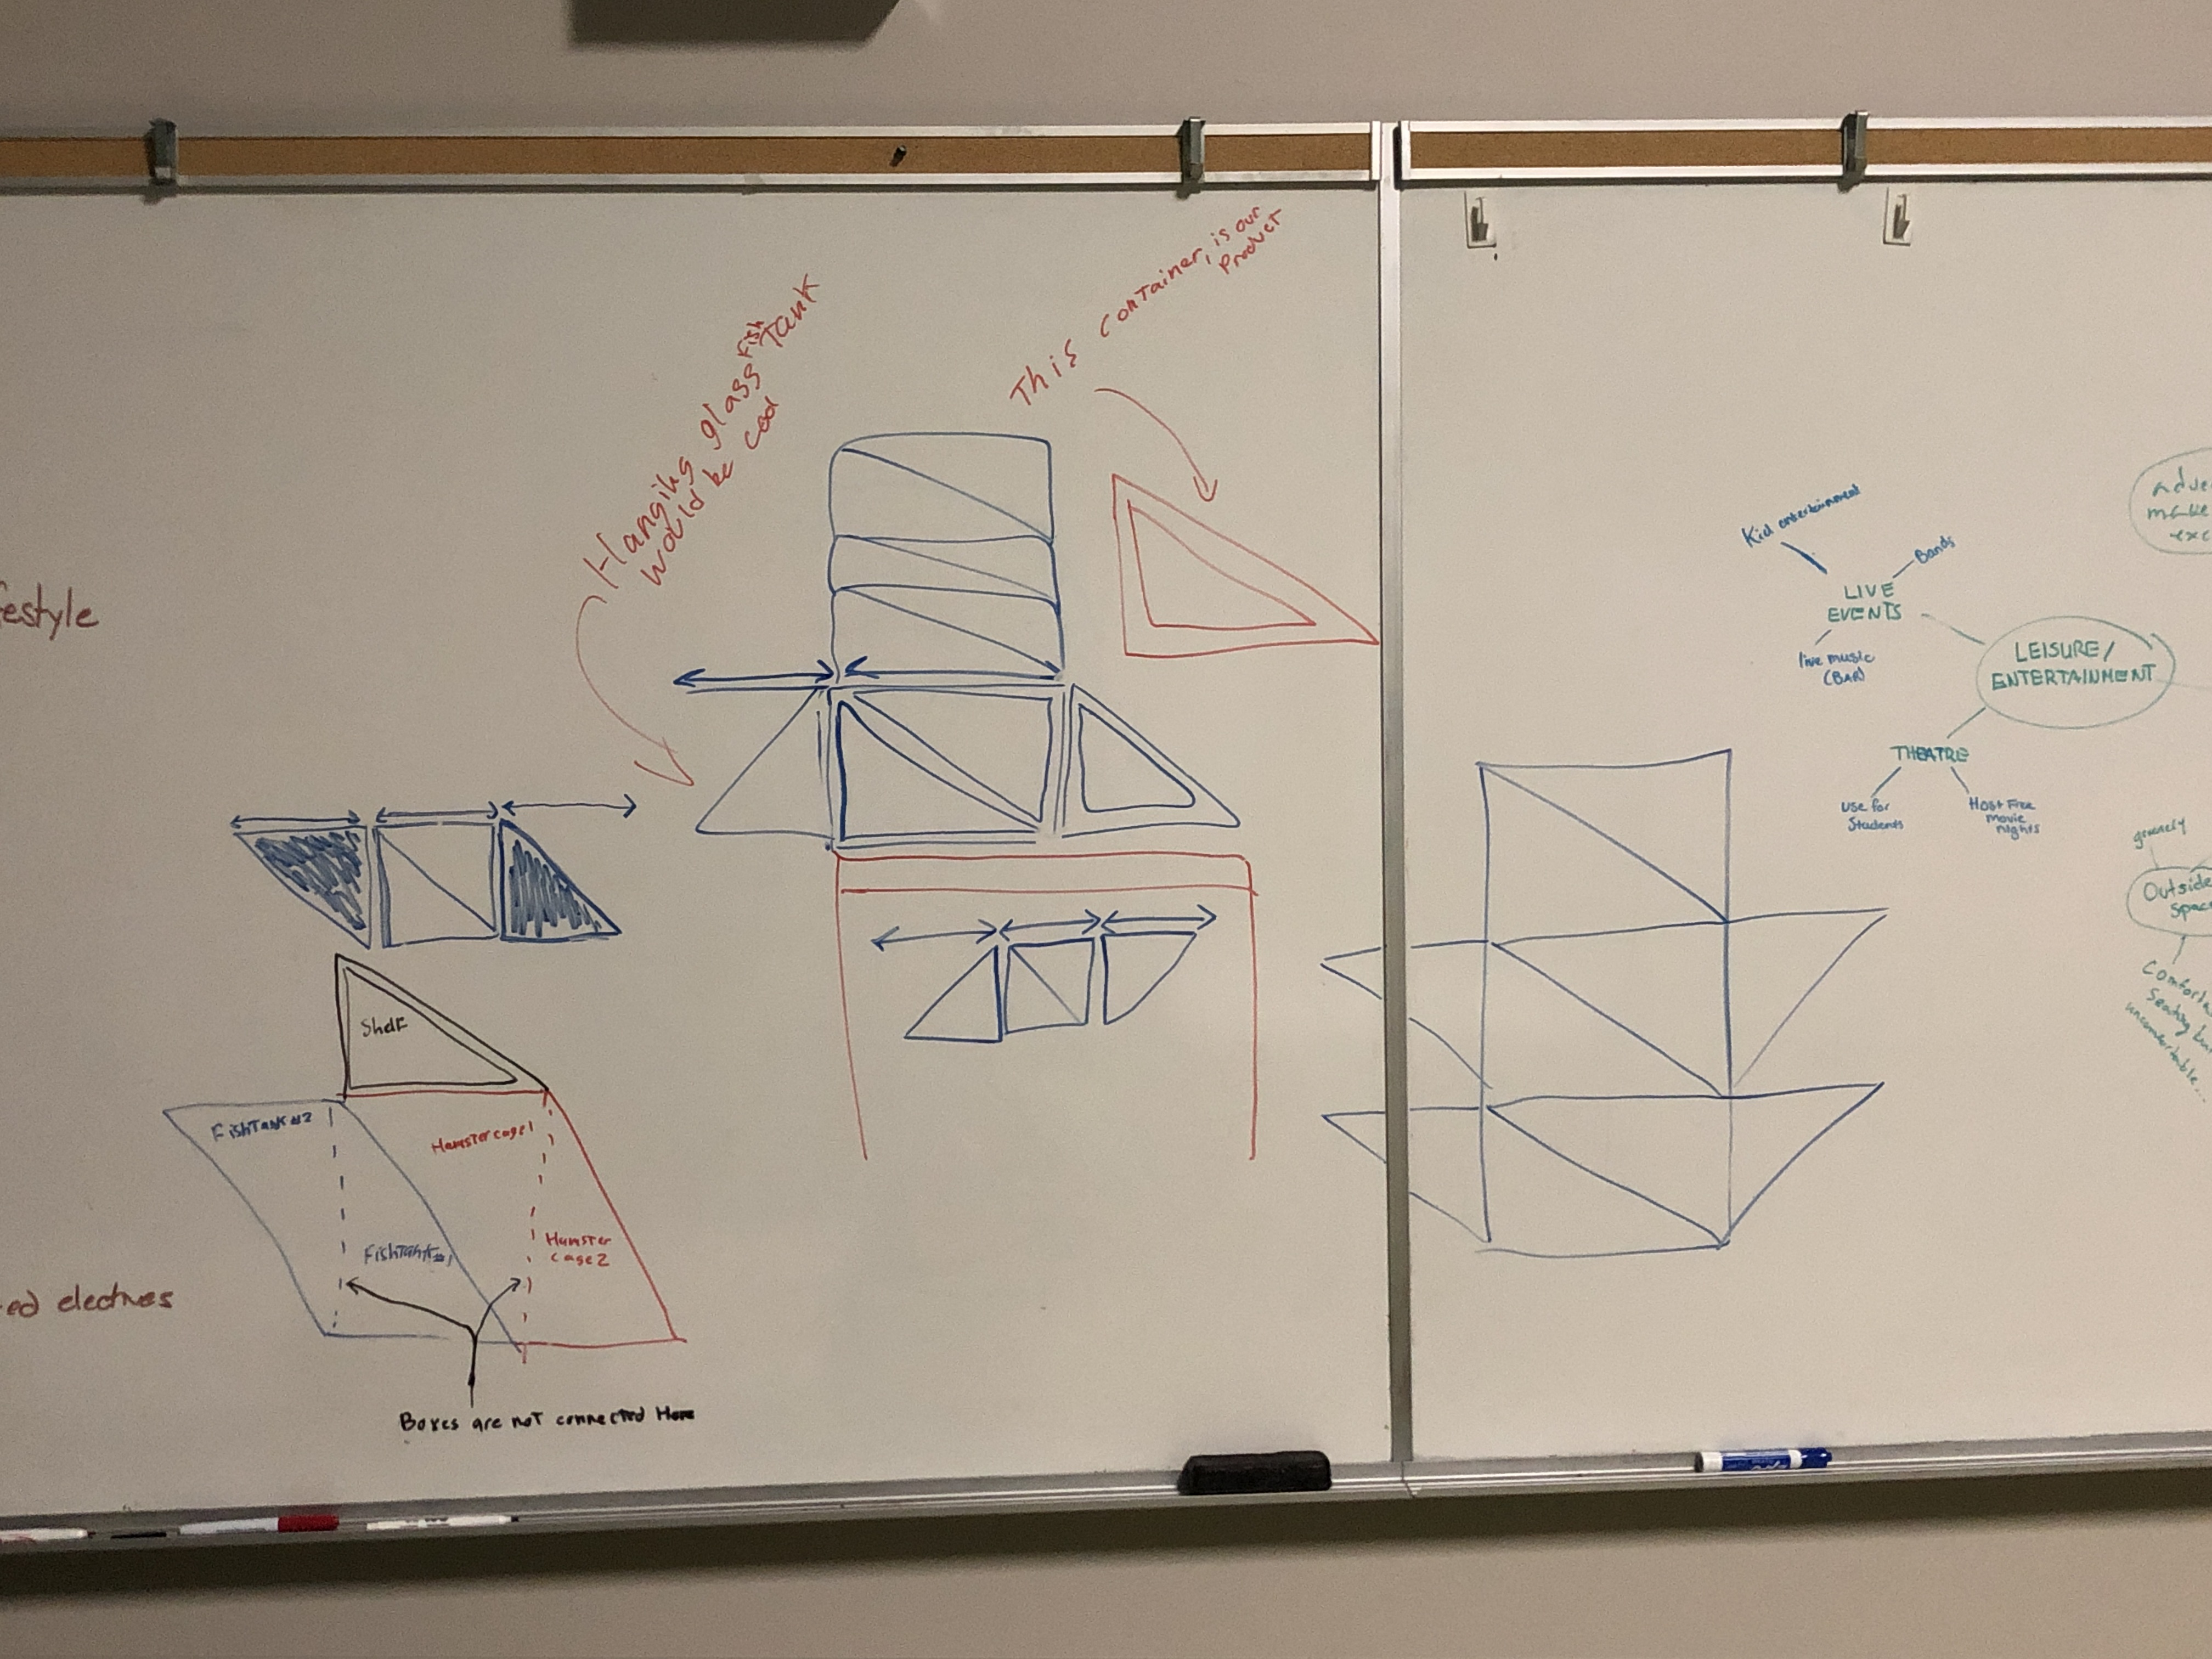 festyle
ed electives
Hanging glass Fish Tank
would be cool
This container, is our
Product
Shelf
FishTank #2
Hamster cage 1
FishTank #1
Hamster
cage 2
Boxes are not connected Here
Kid entertainment
Bands
LIVE
EVENTS
live music
(BAR)
LEISURE/
ENTERTAINMENT
THEATRE
use for
Students
Host Free
movie
nights
adve
make
exc
Outside
spac
Comforta
Seating
uncomfortable...